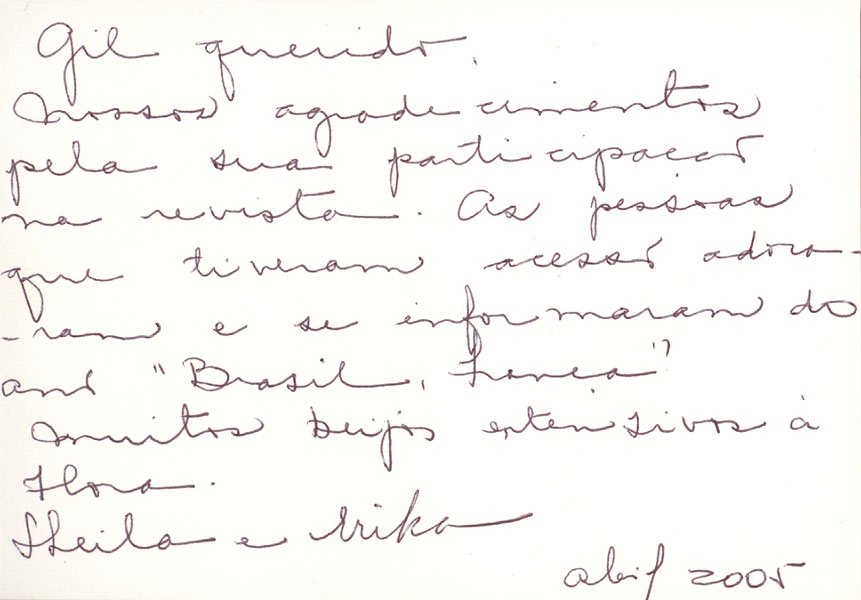 Gil querido,
Nossos agradecimentos
pela sua participação
na revista. As pessoas
que tiveram acesso adora-
-ram e se informaram do
ano "Brasil, França"
Muitos beijos extensivos à
Flora.
Sheila e Erika
abril 2005